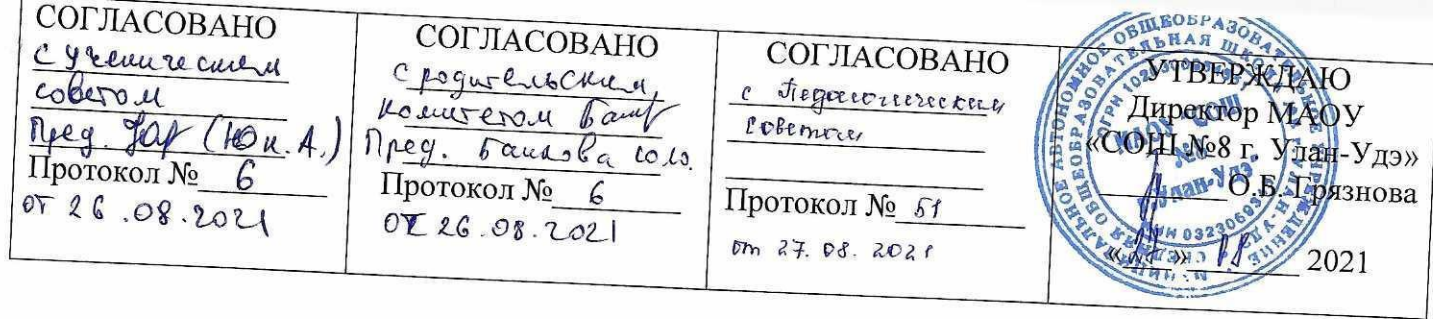 СОГЛАСОВАНО
с ученическим
советом
Пред. (Юн. А.)
Протокол № 6
от 26.08.2021
СОГЛАСОВАНО
с родительским
комитетом
Пред. Ю.Ю.
Протокол № 6
от 26.08.2021
СОГЛАСОВАНО
с Педагогическим
советом
Протокол № 51
от 27.08.2021
УТВЕРЖДАЮ
Директор МАОУ
«СОШ №8 г. Улан-Удэ»
О.Б. Грязнова
2021